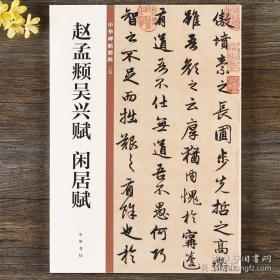 傲墳素之長圃步先哲之高
雖吾顏之云厚猶內愧於寧蘧
有道吾不仕無道吾不愚何巧
智之不足而拙艱之有餘也
中华碑帖精粹
赵孟頫吴兴赋 闲居赋
中华书局